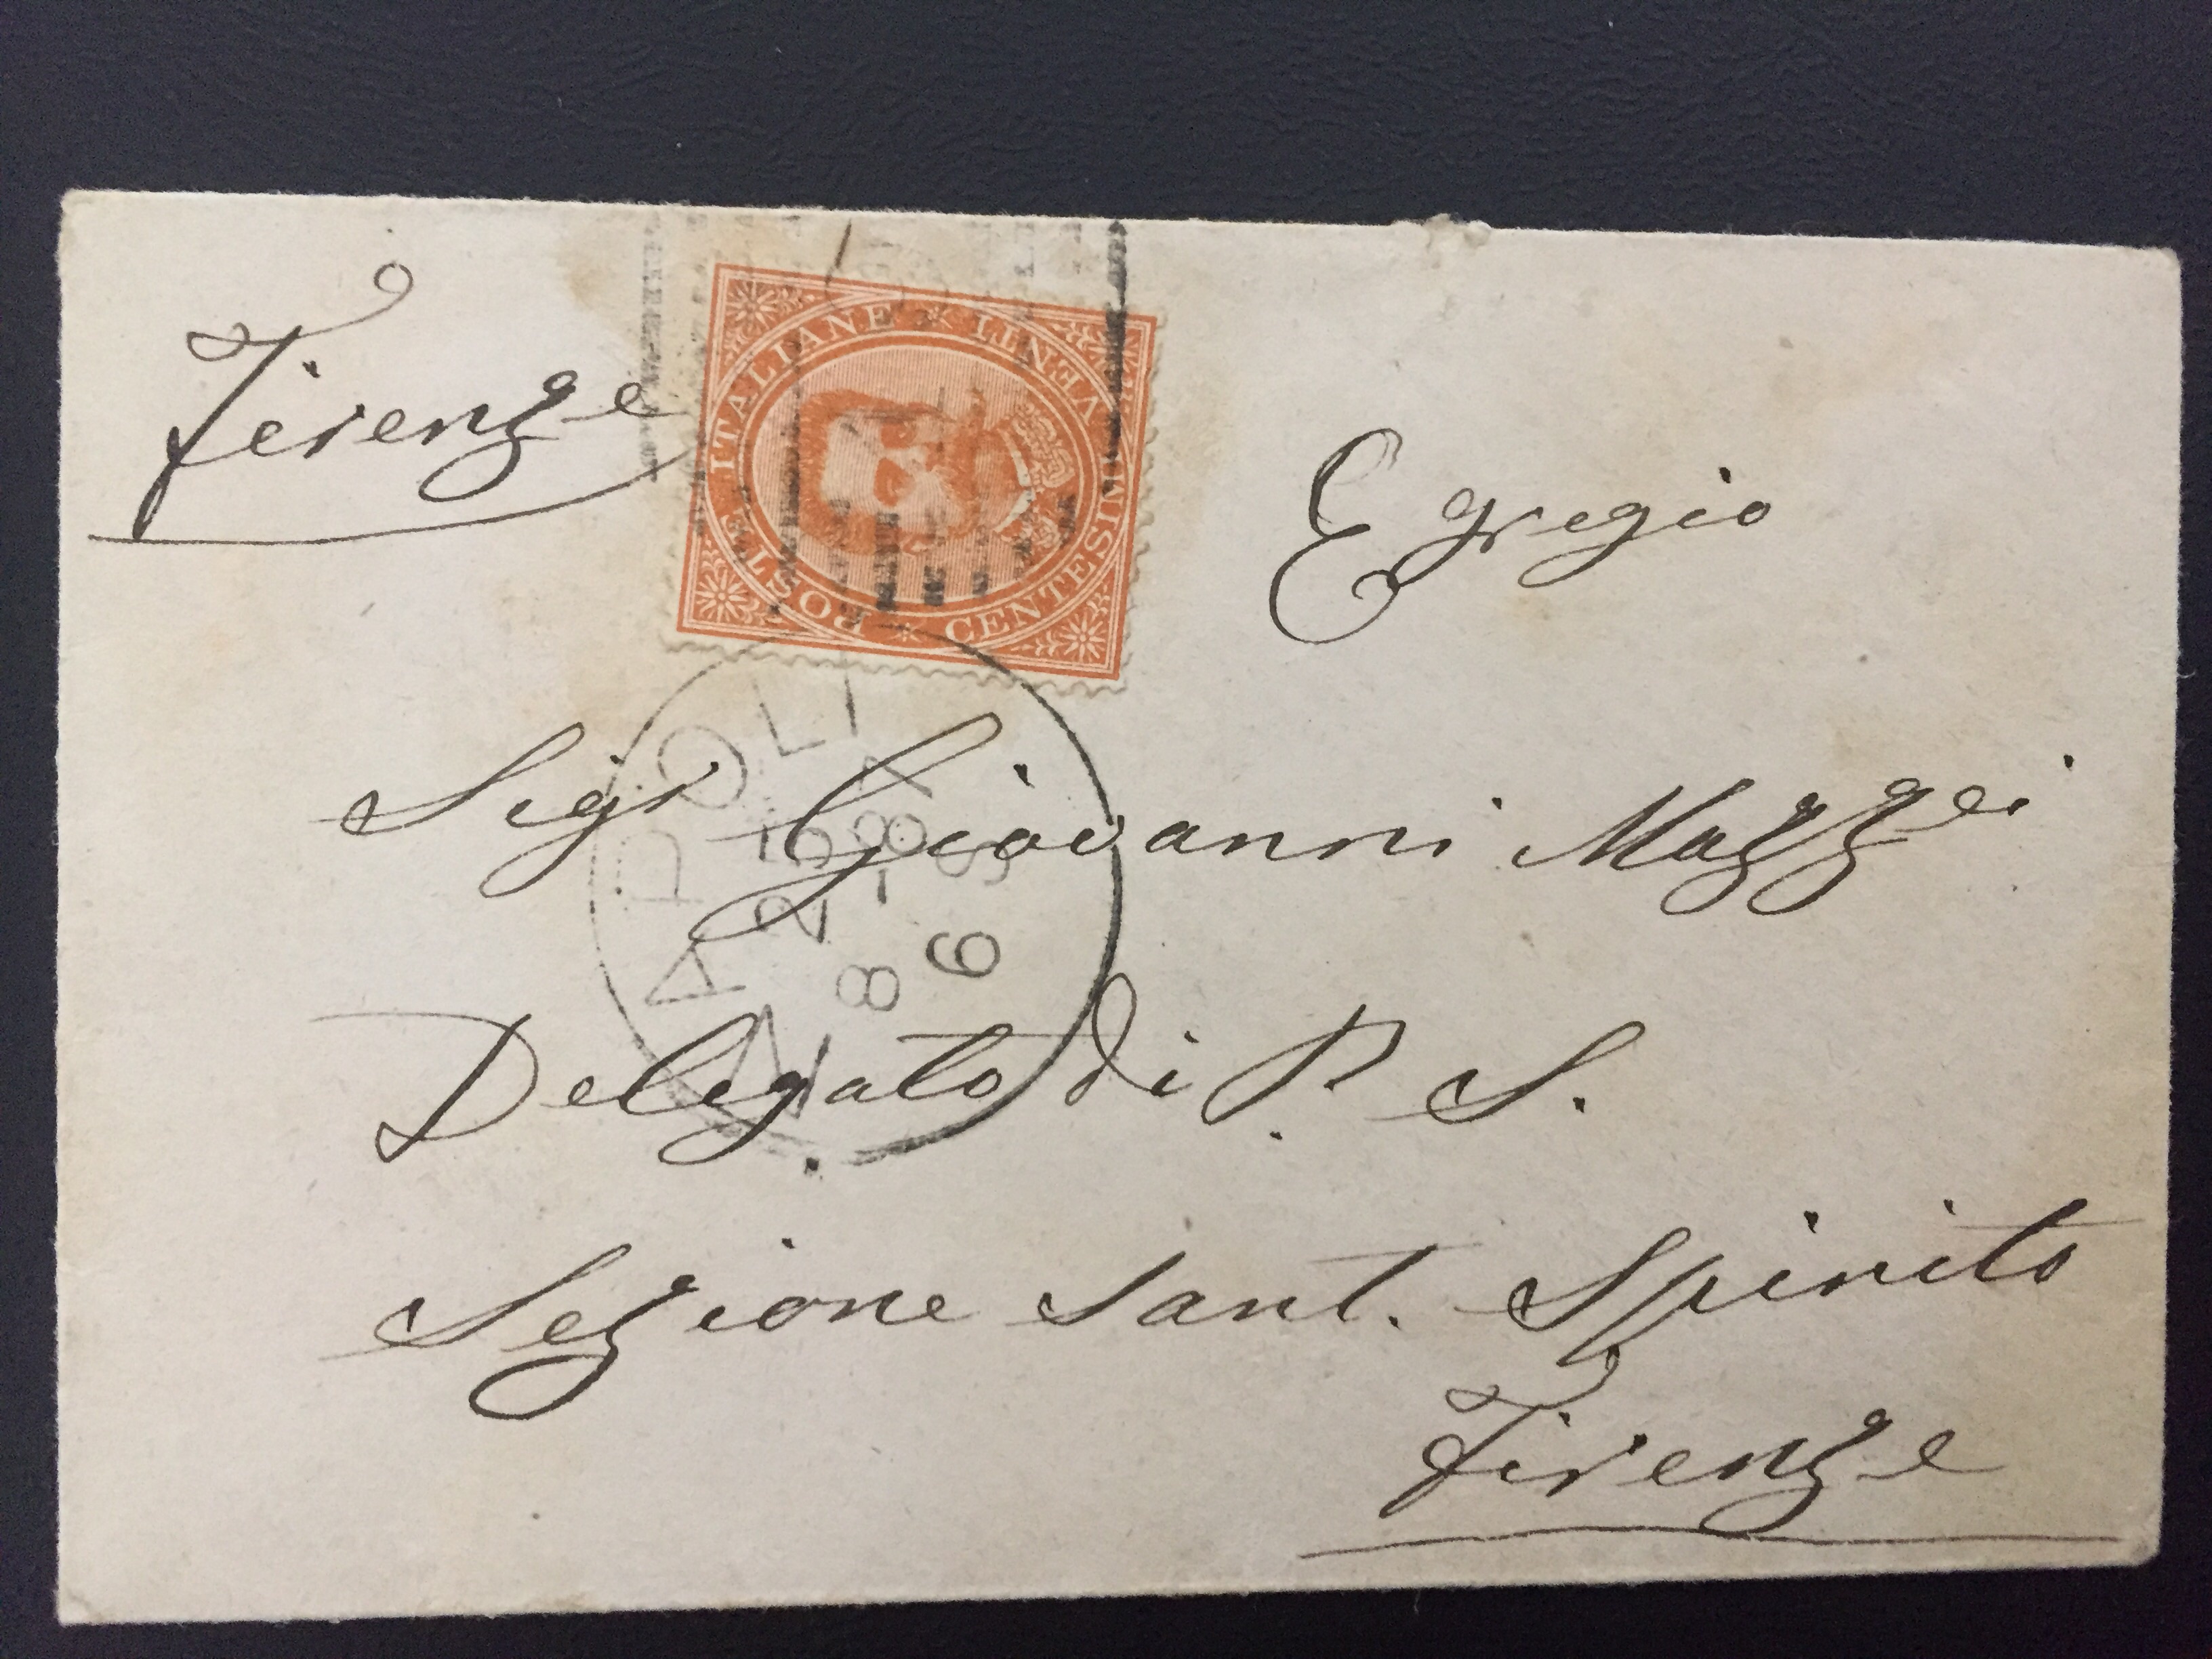 Firenze
POSTE ITALIANE
CENTESIMI VENTI
NAPOLI
8 - 87
6 S
Egregio
Sigr Giovanni Mazzei
Delegato di P. S.
Sezione Sant. Spirito
Firenze